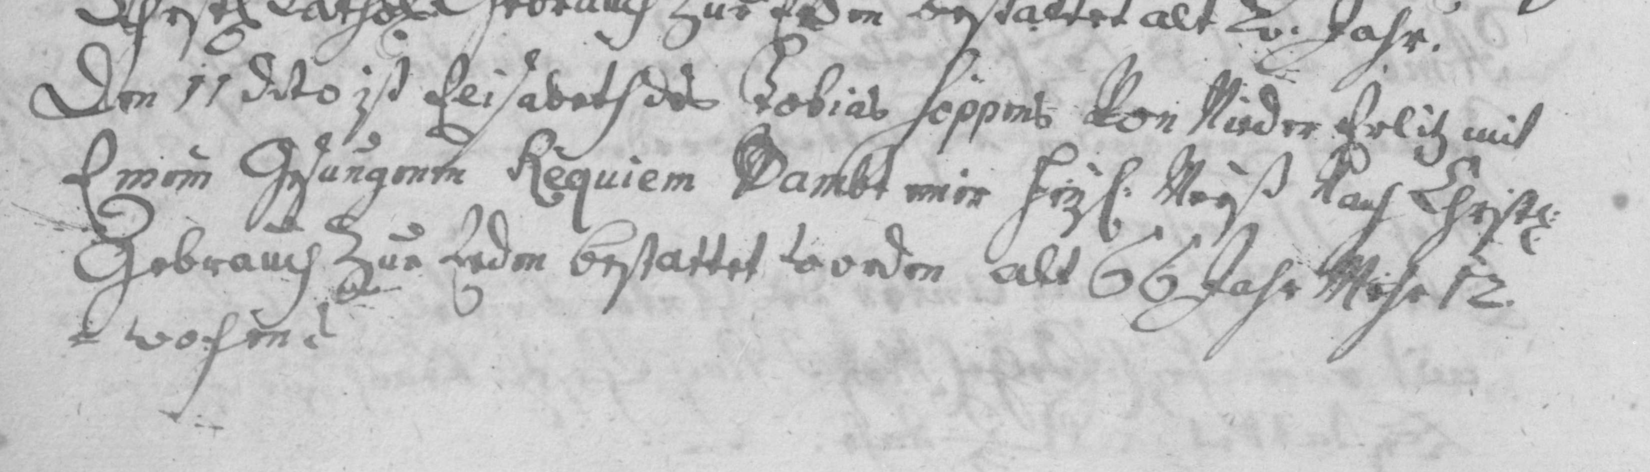 Christl: Cathol: Gebrauch Zur Erden bestattet alt Jahr.
Den 11 dito ist Elisabeth des Tobias Hoppens Von Nieder Erlitz mit
Einem Gesungenen Requiem Sambt einer Heyl: Meeß Nach Christl:
Gebrauch Zur Erden bestattet worden alt 66 Jahr Mehr 12.
wochen